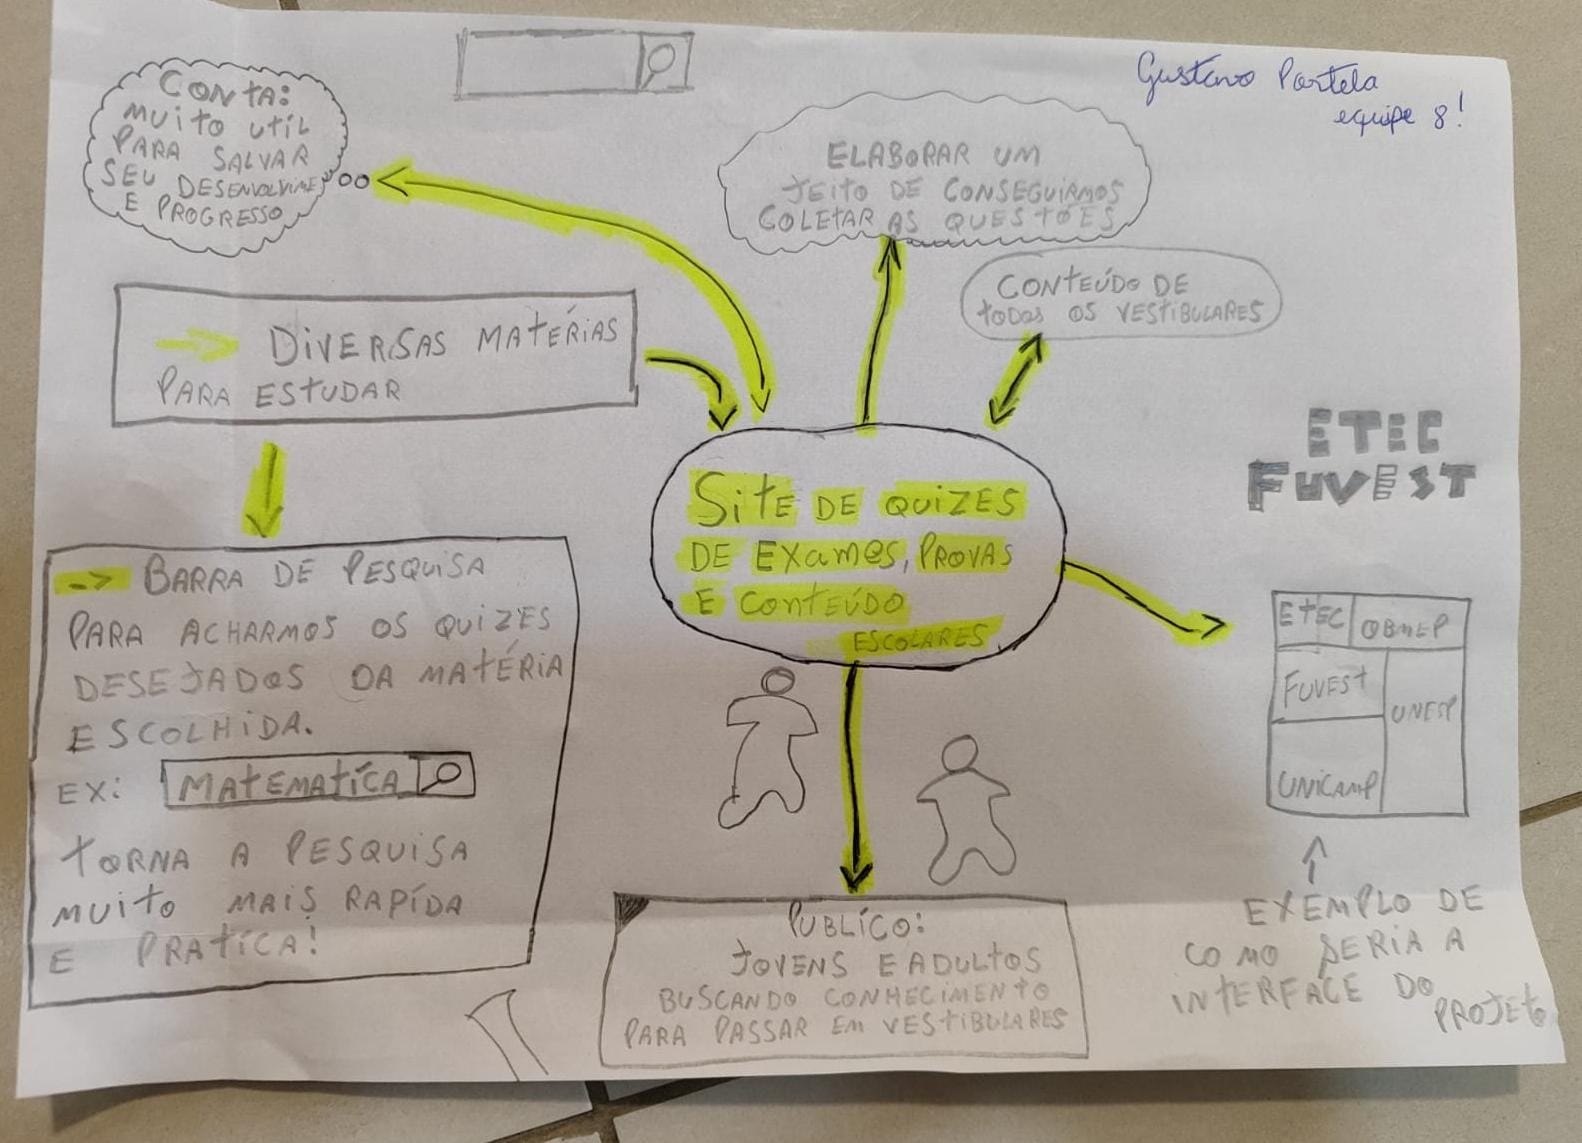 Gustavo Portela
equipe 8!
CONTA:
MUITO UTÍL
PARA SALVAR
SEU DESENVOLVIME
E PROGRESSO
ELABORAR UM
JEITO DE CONSEGUIRMOS
COLETAR AS QUESTÕES
CONTEÚDO DE
TODOS OS VESTIBULARES
→ DIVERSAS MATÉRIAS
PARA ESTUDAR
ETEC
FUVEST
SITE DE QUIZES
DE EXAMES, PROVAS
E CONTEÚDO
ESCOLARES
-> BARRA DE PESQUISA
PARA ACHARMOS OS QUIZES
DESEJADOS DA MATÉRIA
ESCOLHIDA.
EX: MATEMATÍCA
TORNA A PESQUISA
MUITO MAIS RAPÍDA
E PRATÍCA!
ETEC OBMEP
FUVEST
UNESP
UNICAMP
EXEMPLO DE
COMO SERIA A
INTERFACE DO
PROJETO
PUBLÍCO:
JOVENS E ADULTOS
BUSCANDO CONHECIMENTO
PARA PASSAR EM VESTIBULARES